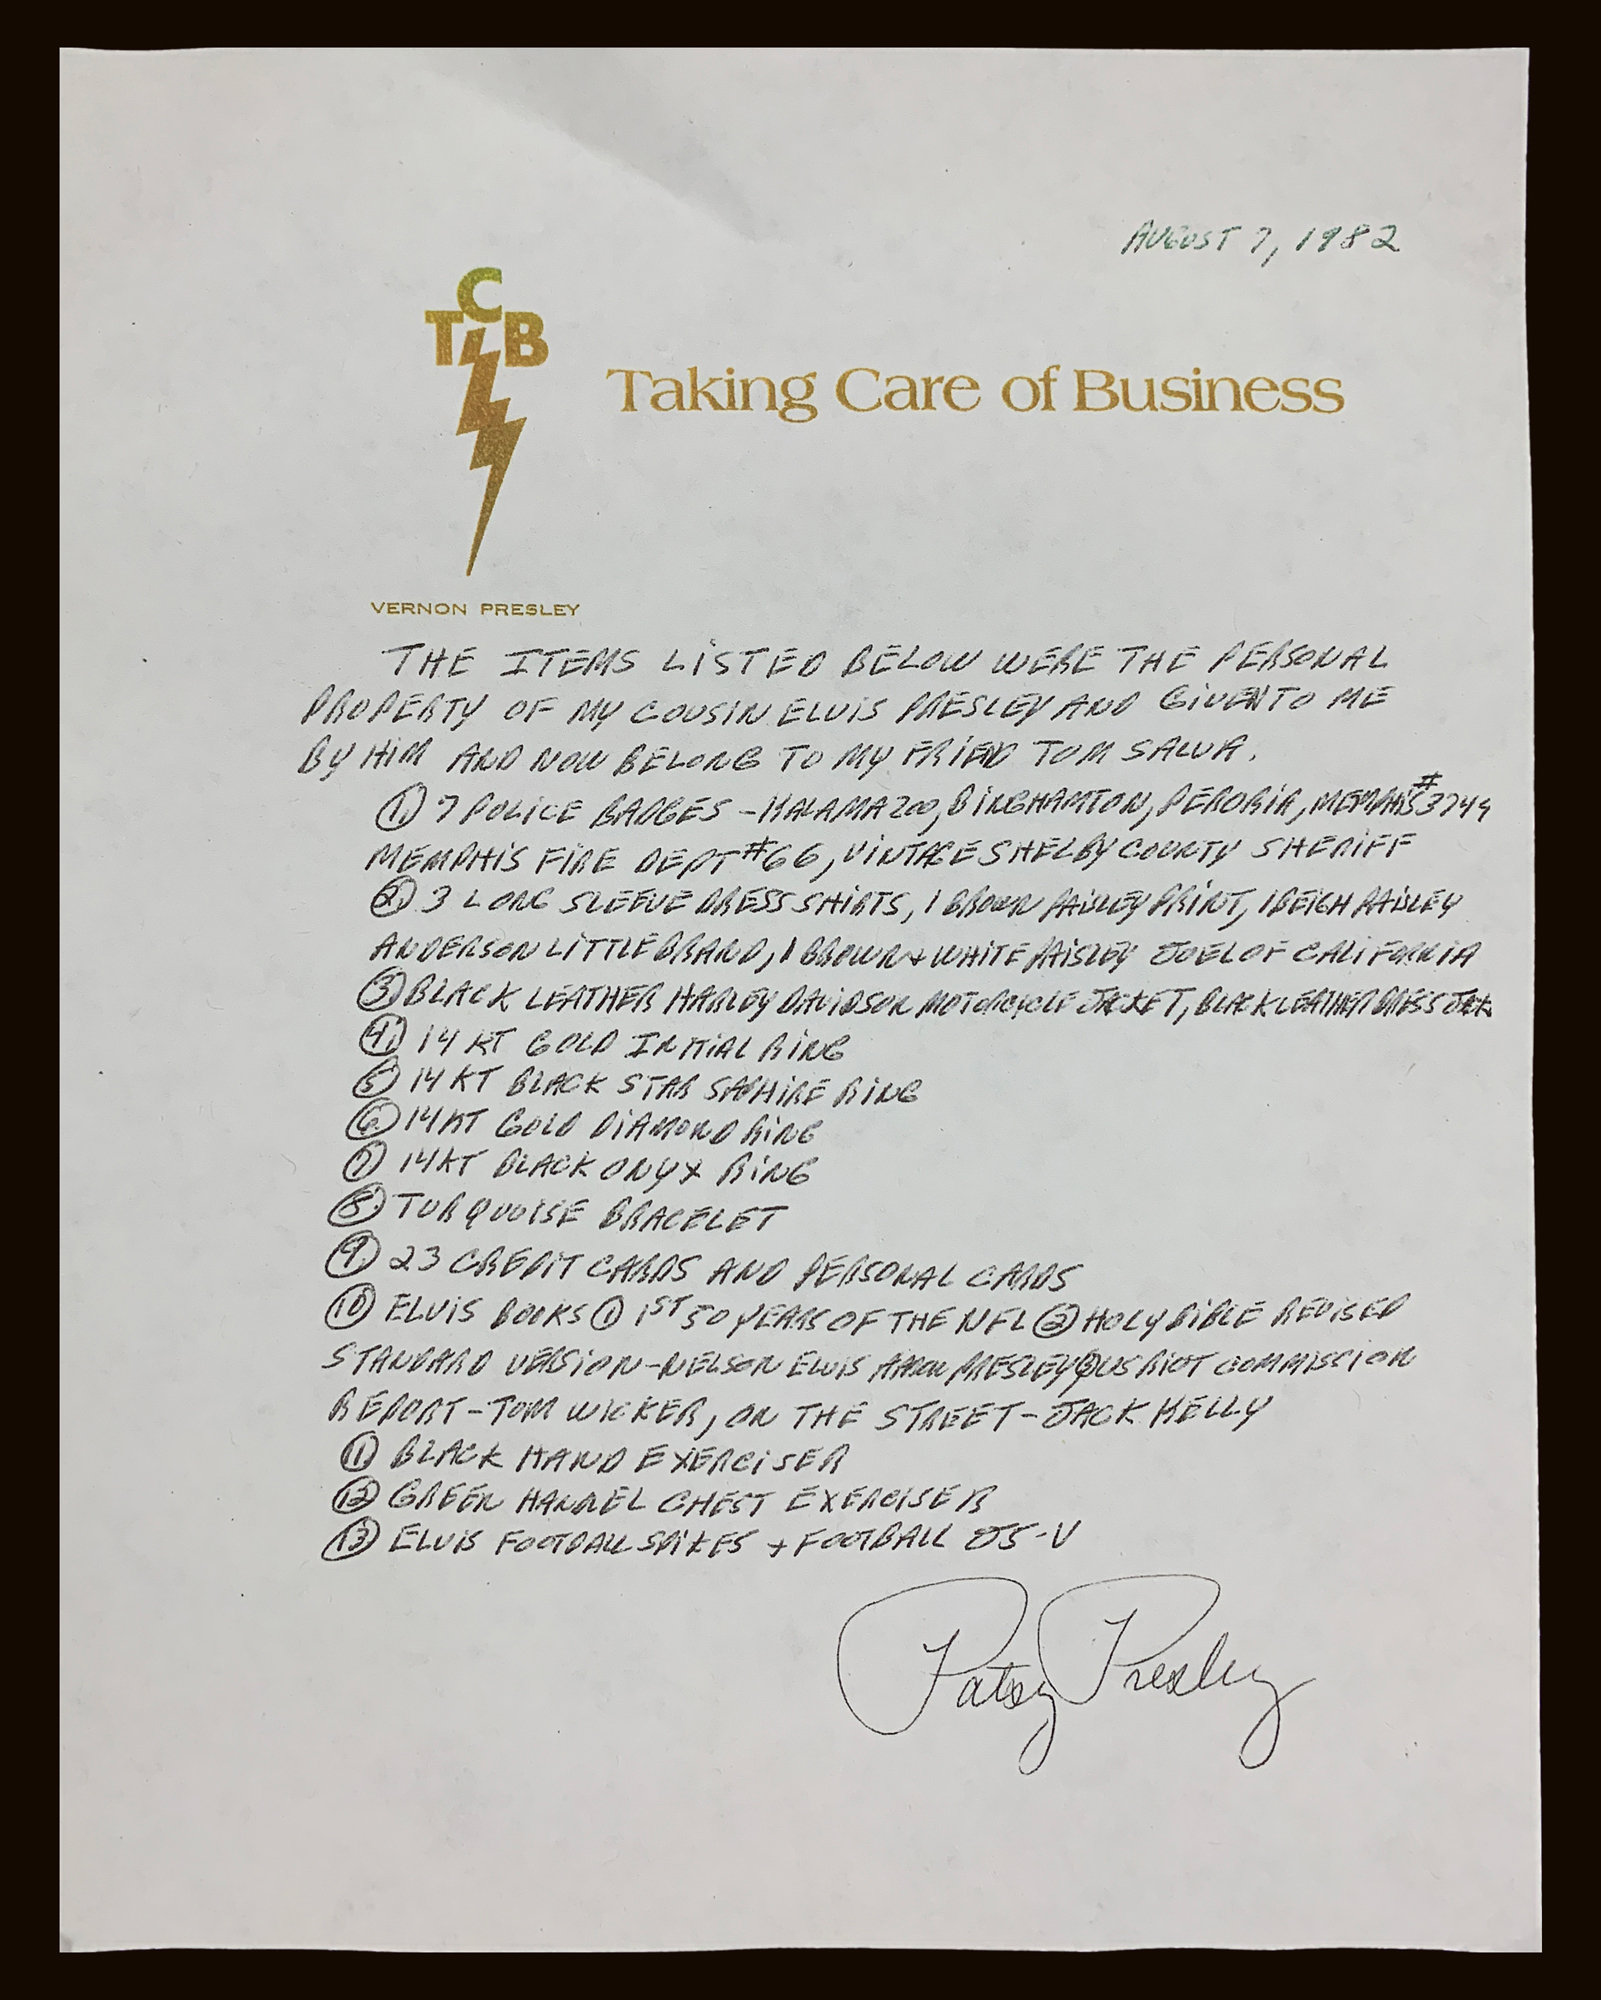 AUGUST 7, 1982
TCB
Taking Care of Business
VERNON PRESLEY
THE ITEMS LISTED BELOW WERE THE PERSONAL
PROPERTY OF MY COUSIN ELVIS PRESLEY AND GIVEN TO ME
BY HIM AND NOW BELONG TO MY FRIEND TOM SALVA.
1. 7 POLICE BADGES - KALAMAZOO, BINGHAMTON, PERORIA, MEMPHIS #3749
MEMPHIS FIRE DEPT #66, VINTAGE SHELBY COUNTY SHERIFF
2. 3 LONG SLEEVE DRESS SHIRTS, 1 BROWN PAISLEY PRINT, 1 BEIGH PAISLEY
ANDERSON LITTLE BRAND, 1 BROWN + WHITE PAISLEY JOEL OF CALIFORNIA
3. BLACK LEATHER HARLEY DAVIDSON MOTORCYCLE JACKET, BLACK LEATHER DRESS
4. 14 KT GOLD INITIAL RING
5. 14 KT BLACK STAR SAPHIRE RING
6. 14KT GOLD DIAMOND RING
7. 14KT BLACK ONYX RING
8. TURQUOISE BRACELET
9. 23 CREDIT CARDS AND PERSONAL CARDS
10 ELVIS BOOKS 1 1ST 50 YEARS OF THE NFL 2 HOLY BIBLE REVISED
STANDARD VERSION-NELSON ELVIS AARON PRESLEY 3 US RIOT COMMISSION
REPORT-TOM WICKER, ON THE STREET-JACK KELLY
11 BLACK HAND EXERCISER
12 GREEN HANDEL CHEST EXERCISER
13 ELVIS FOOTBALL SPIKES + FOOTBALL J5-V
Patsy Presley